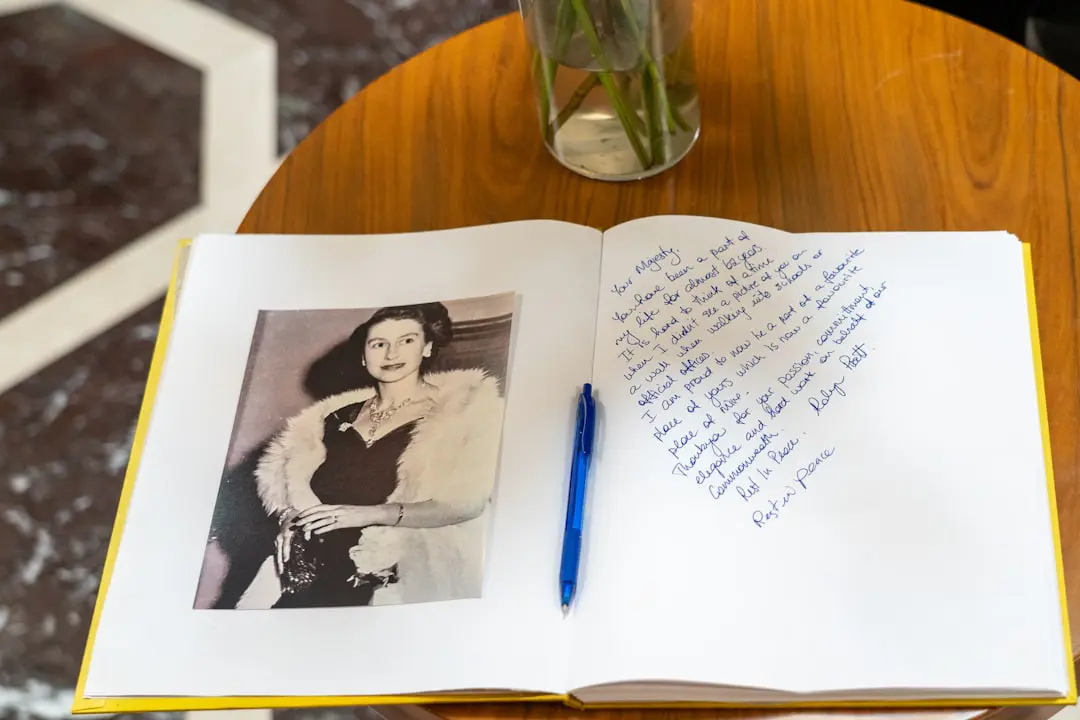 Your Majesty.
You have been a part of
my life for almost 62 years.
It is hard to think of a time
when I didn't see a picture of you on
a wall when walking into schools or
official offices.
I am proud to now be a part of a favourite
place of yours which is now a favourite
place of mine.
Thankyou for your passion, commitment,
elegance and hard work on behalf of our
Commonwealth.
Rest In Peace. Robyn
Rest in Peace